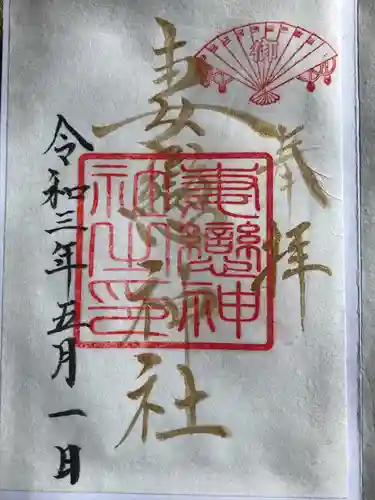 奉拝
妻戀神社
令和三年五月一日
妻戀神
社之印